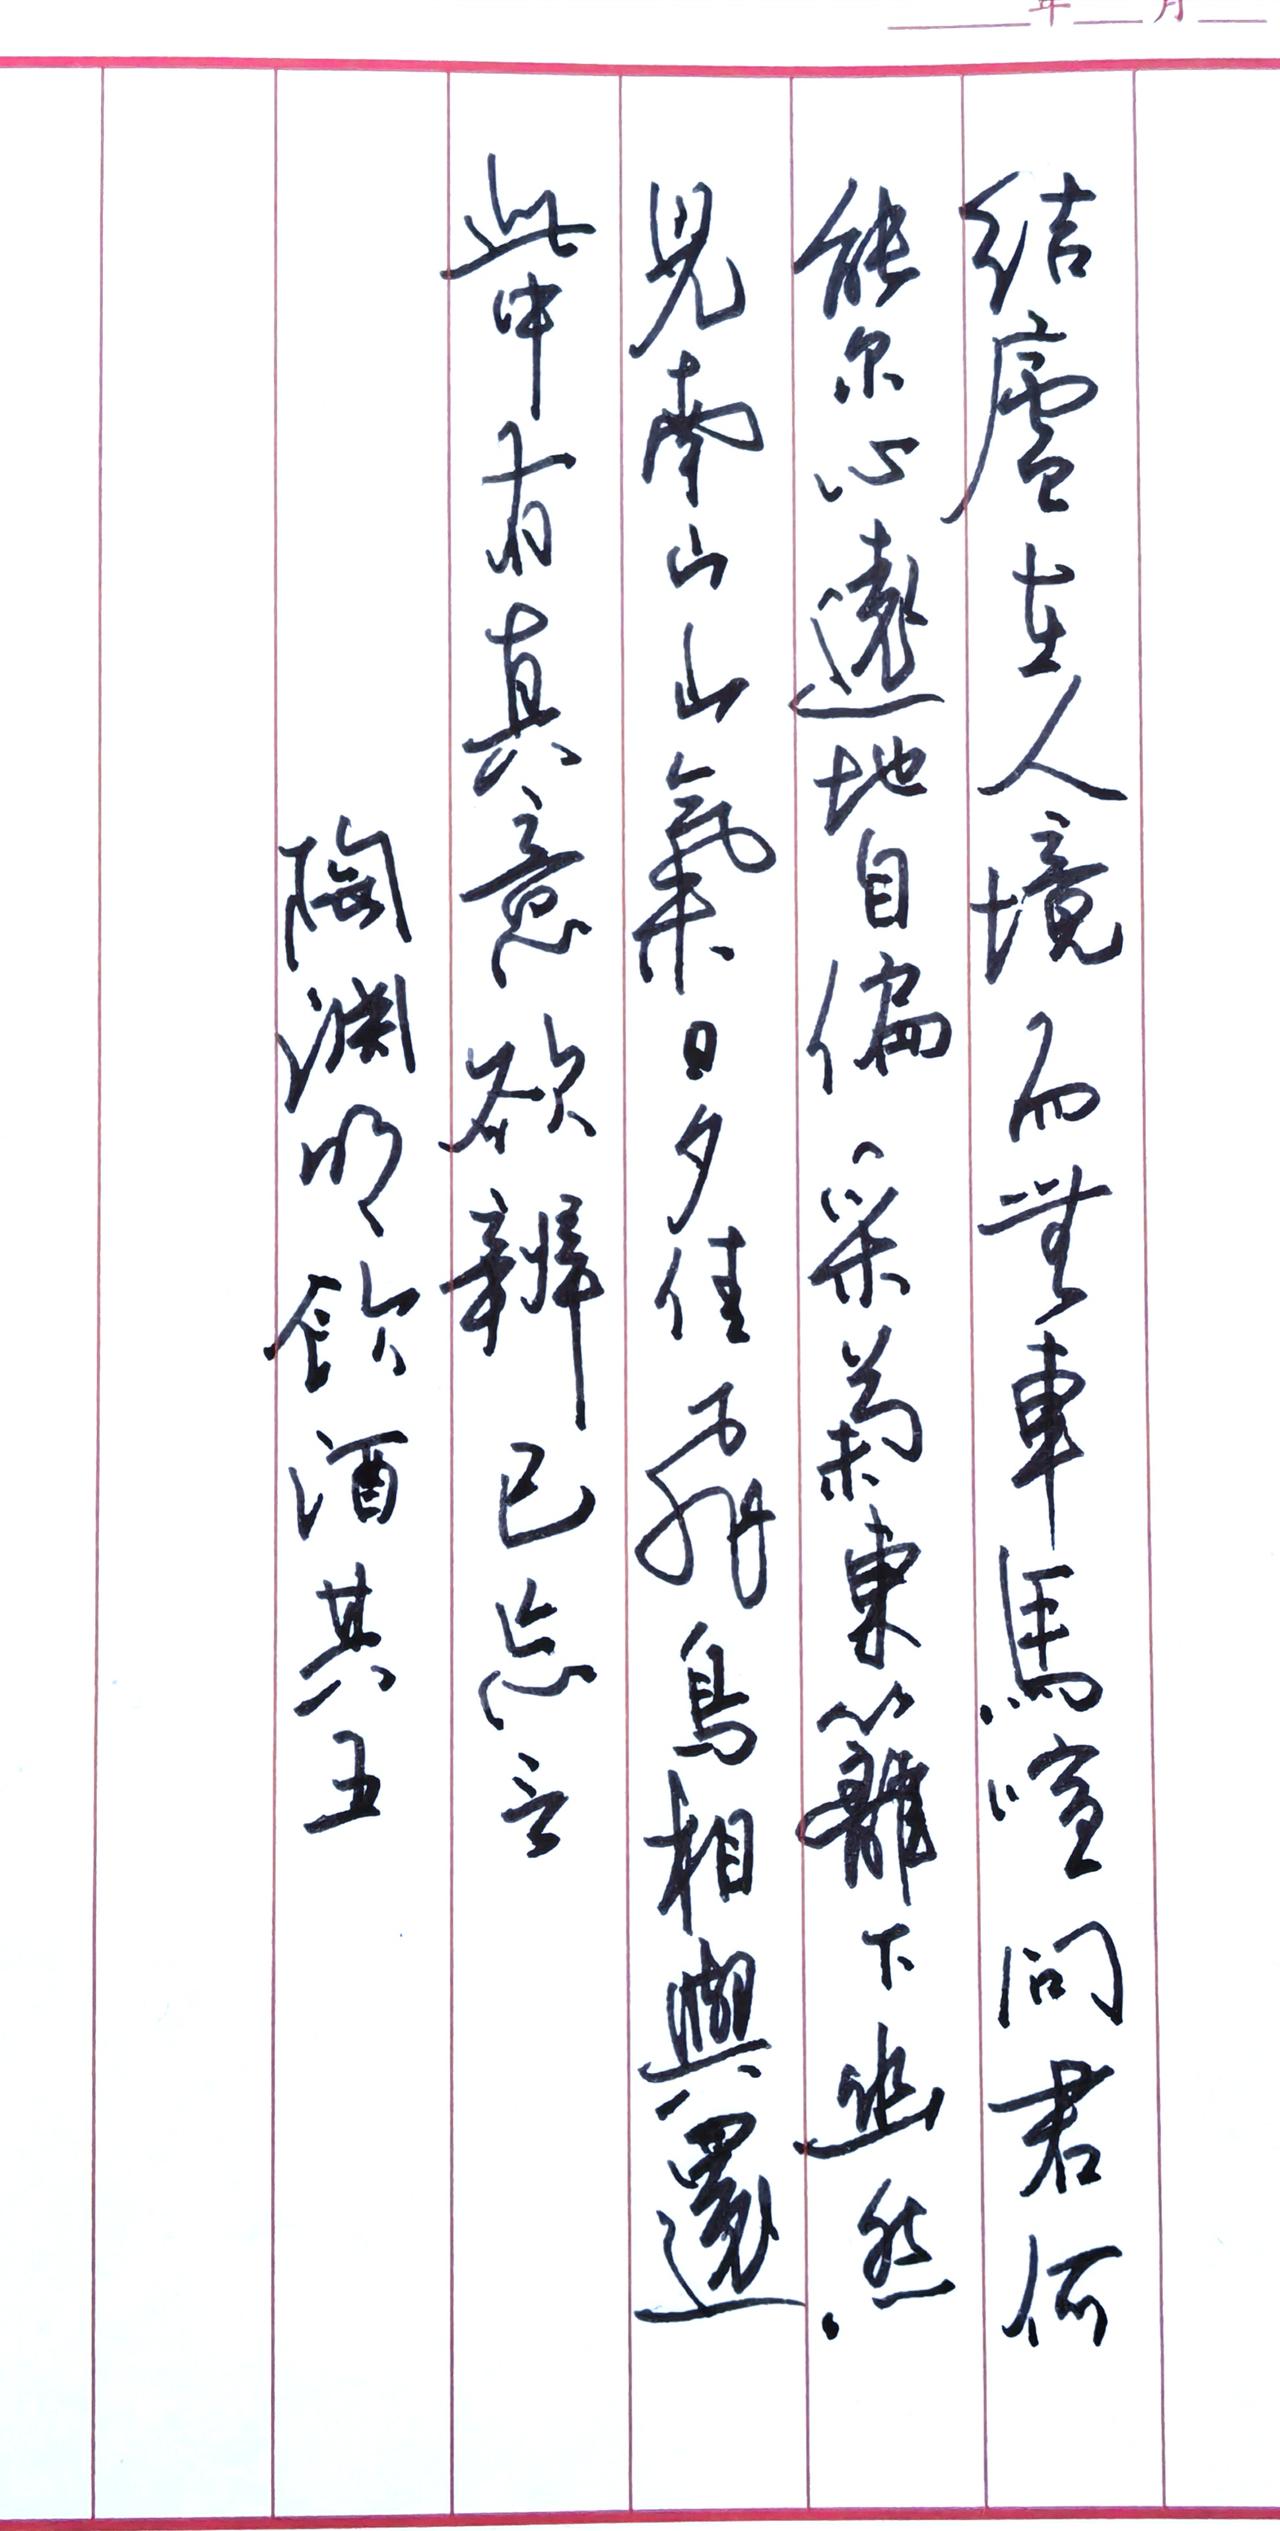 年 月
结廬在人境而無車馬喧問君何
能尔心遠地自偏采菊東籬下悠然
見南山山氣日夕佳飛鳥相與還
此中有真意欲辨已忘言
陶淵明飲酒其五